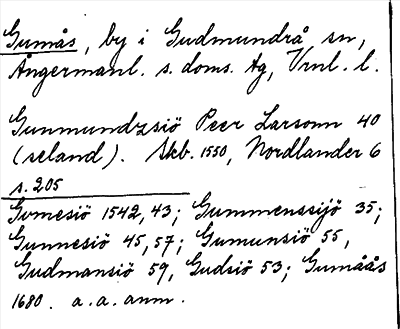 Gumås, by i Gudmundrå sn,
Ångermanl. s. doms. tg, Vrnl. l.
Gunmundzsiö Peer Larsonn 40
(seland). Skb. 1550, Nordlander 6
s. 205
Gomesiö 1542, 43; Gummenssijö 35;
Gunnesiö 45, 57; Gumunsiö 55,
Gudmansiö 59, Gudsiö 53; Gumåås
1680. a. a. anm.